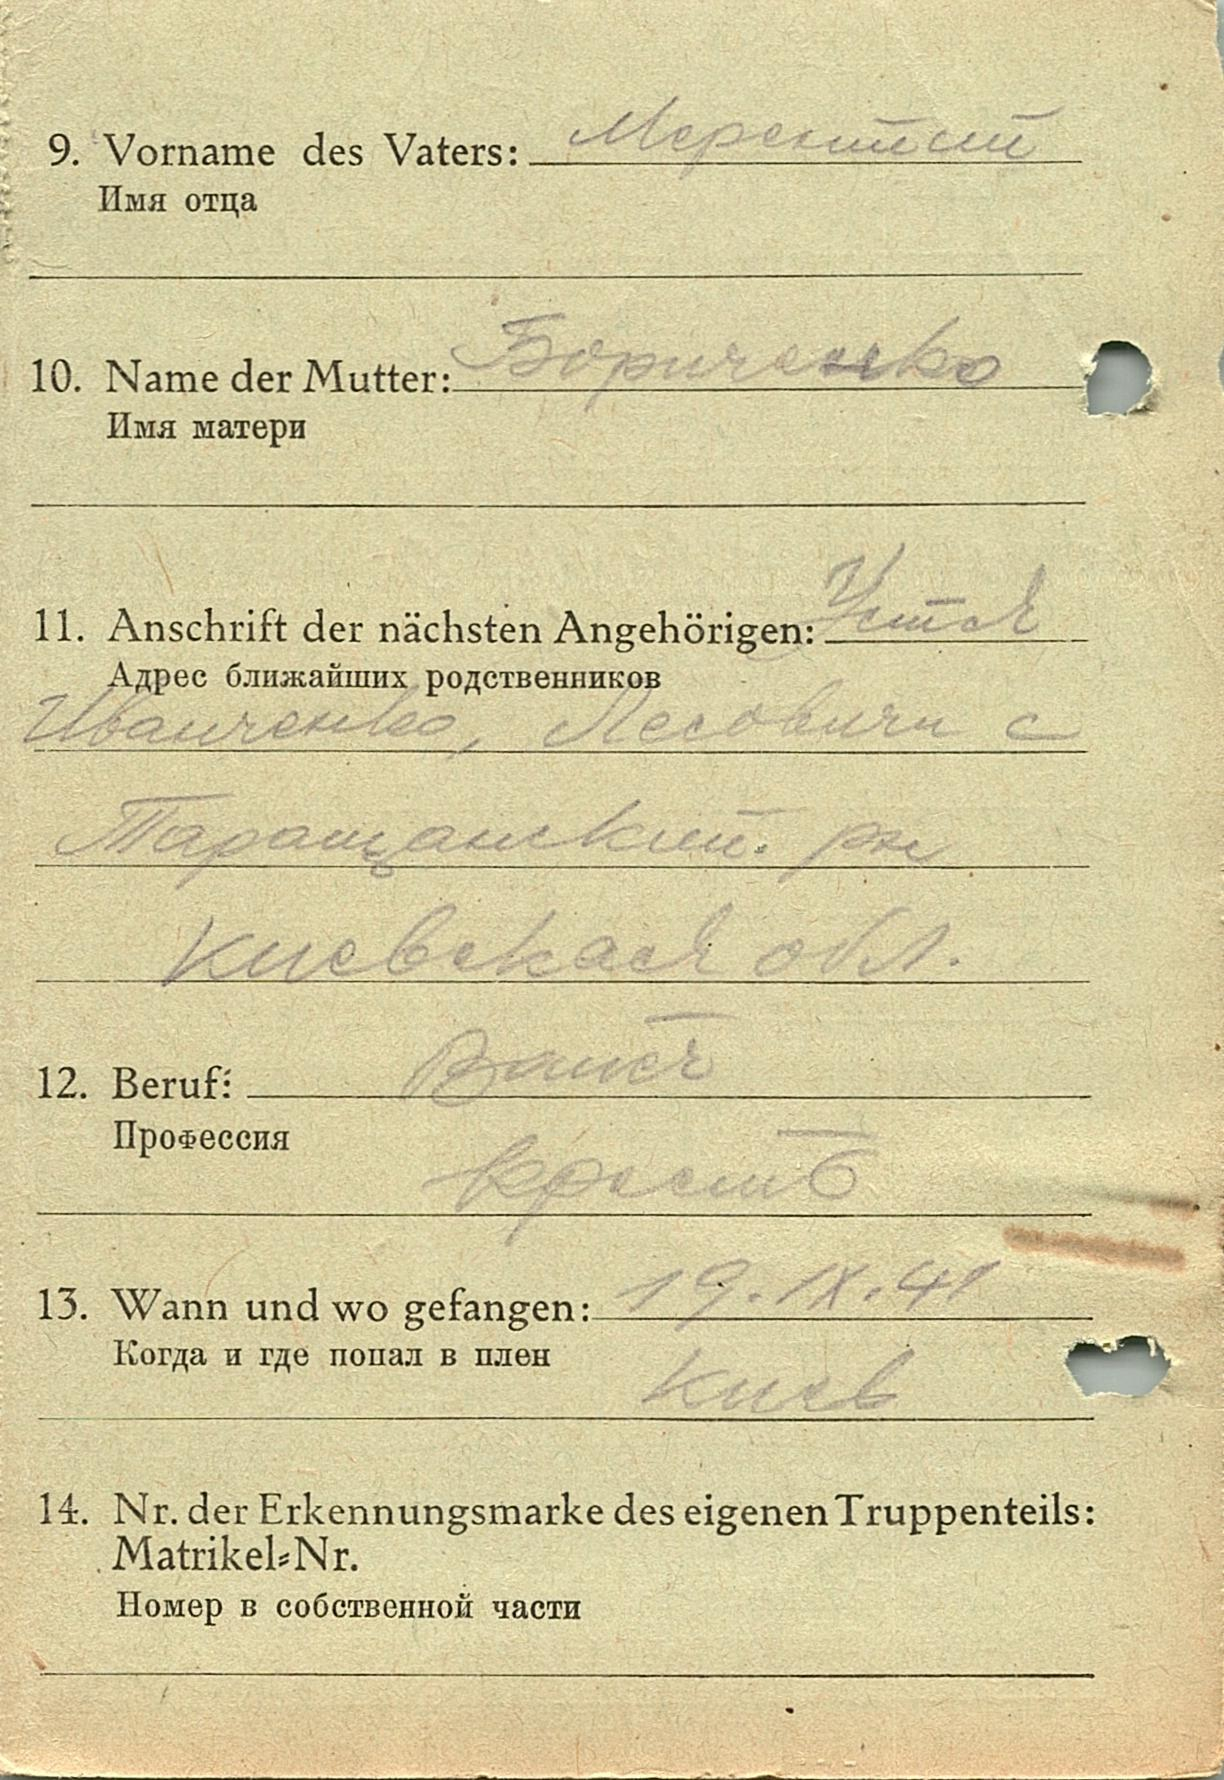 9. Vorname des Vaters: Мерентий
Имя отца
10. Name der Mutter: Бориченко
Имя матери
11. Anschrift der nächsten Angehörigen: Устя
Адрес ближайших родственников
Иванченко, Лесовичи с
Таращанский. рн
Киевская обл.
12. Beruf:
Профессия
крестБ
13. Wann und wo gefangen: 19.IX.41
Когда и где попал в плен
Киев
14. Nr. der Erkennungsmarke des eigenen Truppenteils:
Matrikel-Nr.
Номер в собственной части